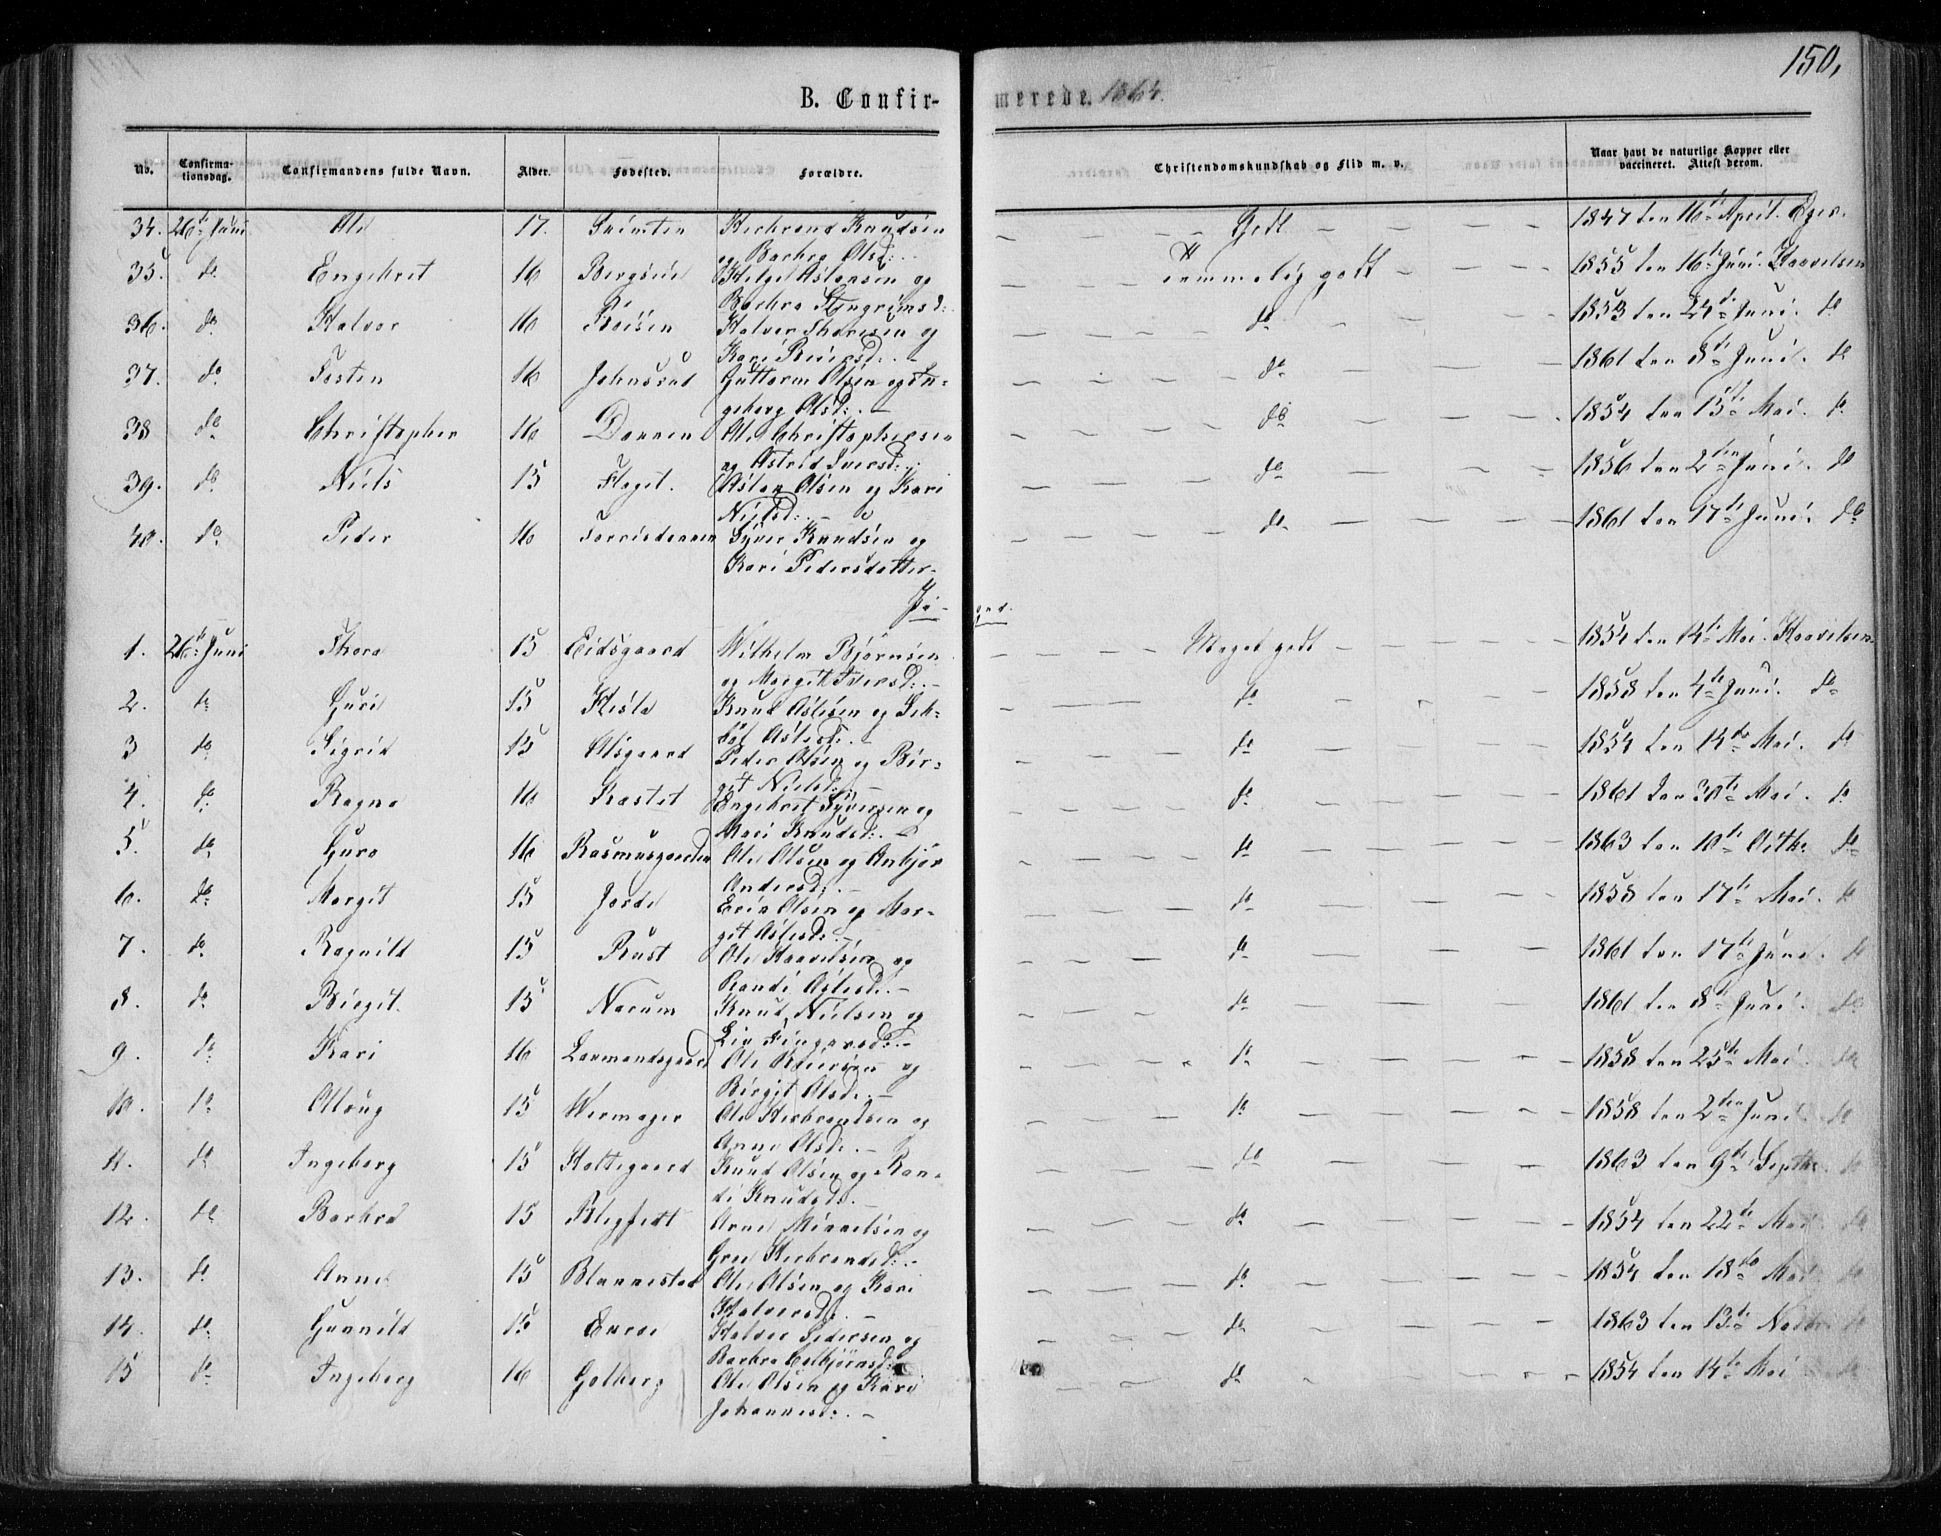 150,
B. Confirmerede. 1864.
No. Confirmationsdag. Confirmandens fulde Navn. Alder. Fødested. Forældre. Christendomskundskab og Flid m. v. Naar havt de naturlige Kopper eller vaccineret. Attest derom.
34. 26de Juni Ole 17. Herbrand Knudsen Godt 1847 den 16de April.
og Barbra Olsd:
35. do Engebret 16 Bergseie Helge Aslaksen og Temmelig godt 1855 den 16de Juni. Haavelsen
Barbra Stengrimsd:
36. do Halvor 16 Halvor Thoresen og do 1853 den 24de Juni. do
Kari
37. do Tosten 16 Johnsrud Guttorm Olsen og In- do 1861 den 8de Juni. do
geborg Olsd:
38 do Christopher 16 Dannen Ole Christophersen do 1854 den 15de Mai. do
og Astrid Iversd:
39. do Niels 15 Aslak Olsen og Kari do 1856 den 2den Juni do
Nielsd:
40. do Peder 16 Syver Knudsen og do 1861 den 17de Juni. do
Kari Pedersdatter
1. 26de Juni Thora 15 Eidsgaard Wilhelm Bjørnsen Meget godt 1854 den 14de Mai. Haavelsen
og Margit Iversd:
2. do Guri 15 Knud Aslesen og do 1858 den 4de Juni. do
Aslesd:
3 do Sigrid 15 Alsgaard Peder Olsen og Bir- do 1854 den 14de Mai. do
git Nielsd:
4. do Ragna 16 Engebret Syversen og do 1861 den 30te Mai. do
Mari Knudsd:
5. do Guro 16 Rasmusgaarden Ole Olsen og Anbjør do 1863 den 10de Octbr do
Andersd:
6. do Margit 15 Jorde Erik Olsen og Mar- do 1858 den 17de Mai. do
git Aslesd:
7. do Ragnild 15 Rust Ole Haavelsen og do 1861 den 17de Juni. do
Randi Aslesd:
8. do Birgit 15 Narum Knud Nielsen og do 1861 den 8de Juni do
Liv Fingarsd:
9. do Kari 16 Laxmandsgaard Ole og do 1858 den 25de Mai do
Birgit Olsd:
10. do Aslaug 15 Wermager Ole Herbrandsen og do 1858 den 2den Juni do
Anne Olsd:
11. do Ingeborg 15 Holtegaard Knud Olsen og Ran- do 1863 den 9de Septbr do
di Knudsd:
12. do Barbra 15 Arne Mikkelsen og do 1854 den 22de Mai do
Gro Herbrandsd:
13. do Anne 15 Blannestad Ole Olsen og Kari do 1854 den 18de Mai do
Halvorsd:
14. do Gunnild 15 Halvor Pedersen og do 1863 den 13de Novbr do
Barbra Embjørnsd:
15 do Ingeborg 16 Golberg Ole Olsen og Kari do 1854 den 14de Mai
Johannesd: